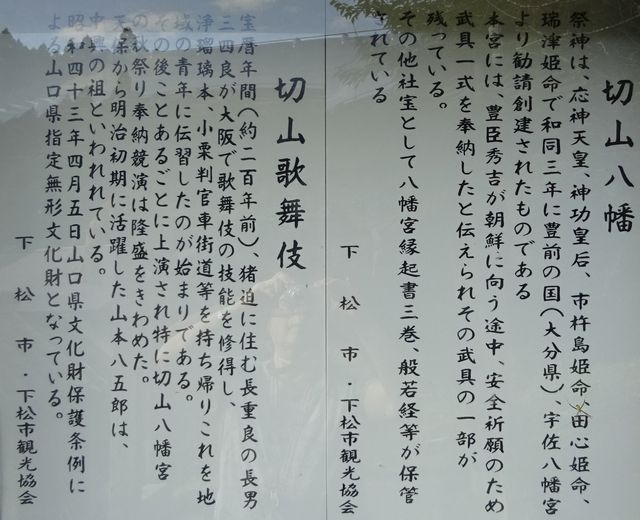 切山八幡
祭神は、応神天皇、神功皇后、市杵島姫命、田心姫命、
瑞津姫命で和同三年に豊前の国(大分県)、宇佐八幡宮
より勧請創建されたものである
本宮には、豊臣秀吉が朝鮮に向う途中、安全祈願のため
武具一式を奉納したと伝えられその武具の一部が
残っている。
その他社宝として八幡宮縁起書三巻、般若経等が保管
されている
下松市・下松市観光協会
切山歌舞伎
宝暦年間(約二百年前)、猪迫に住む長重良の長男
三四良が大阪で歌舞伎の技能を修得し、
浄瑠璃本、小栗判官車街道等を持ち帰りこれを地
域の青年に伝習したのが始まりである。
その後ことあるごとに上演され特に切山八幡宮
の秋祭り奉納競演は隆盛をきわめた。
天保から明治初期に活躍した山本八五郎は、
中興の祖といわれている。
昭和四十三年四月五日山口県文化財保護条例に
よる山口県指定無形文化財となっている。
下松市・下松市観光協会